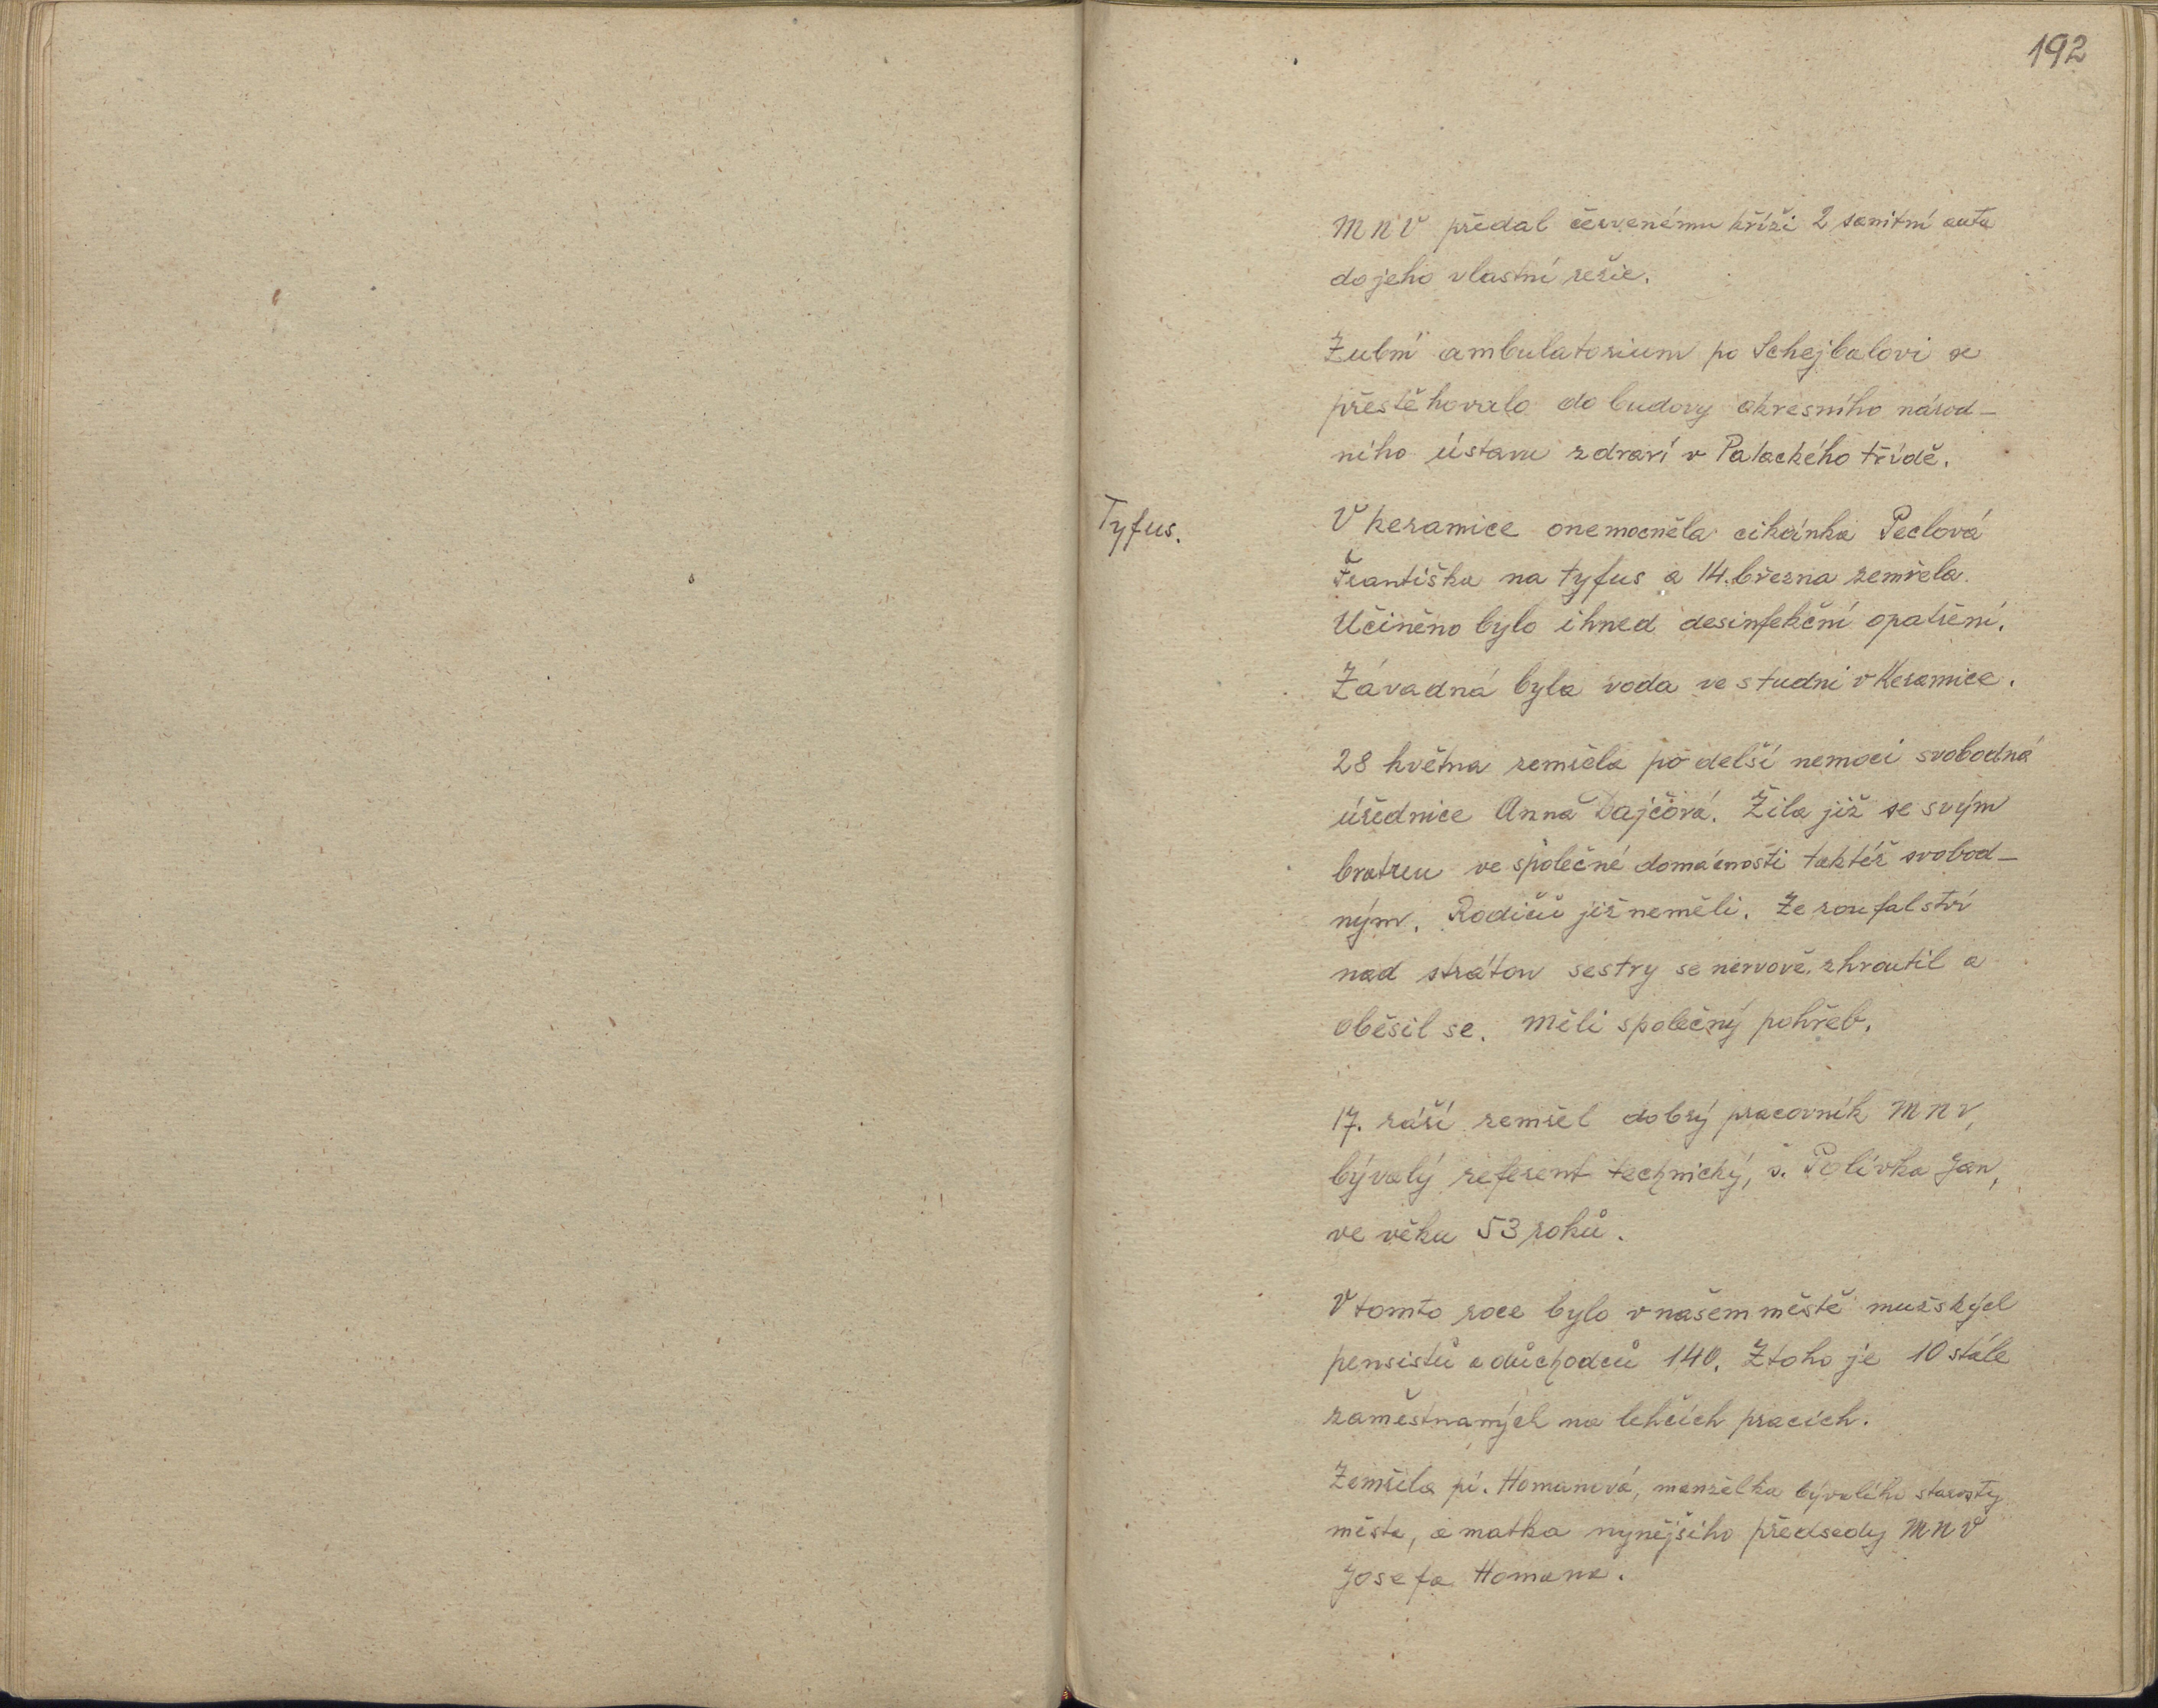 192
MNV předal červenému kříži 2 sanitní auta
do jeho vlastní režie.
Zubní ambulatorium po Schejbalovi se
přestěhovalo do budovy okresního národ-
ního ústavu zdraví v Palackého třídě.
Tyfus.
V keramice onemocněla cikánka Peclová
Františka na tyfus a 14. března zemřela.
Učiněno bylo ihned desinfekční opatření.
Závadná byla voda ve studni v Keramice.
28 května zemřela po delší nemoci svobodná
úřednice Anna Dajčová. Žila již se svým
bratrem ve společné domácnosti taktéž svobod-
ným. Rodičů již neměli. Ze zoufalství
nad strátou sestry se nervově zhroutil a
oběsil se. Měli společný pohřeb.
17. září zemřel dobrý pracovník MNV,
bývalý referent technický, s. Polívka Jan,
ve věku 53 roků.
V tomto roce bylo v našem městě mužských
pensistů a důchodců 140. Z toho je 10 stále
zaměstnaných na lehčích pracích.
Zemřela pí. Homanová, manželka bývalého starosty
města, a matka nynějšího předsedy MNV
Josefa Homana.